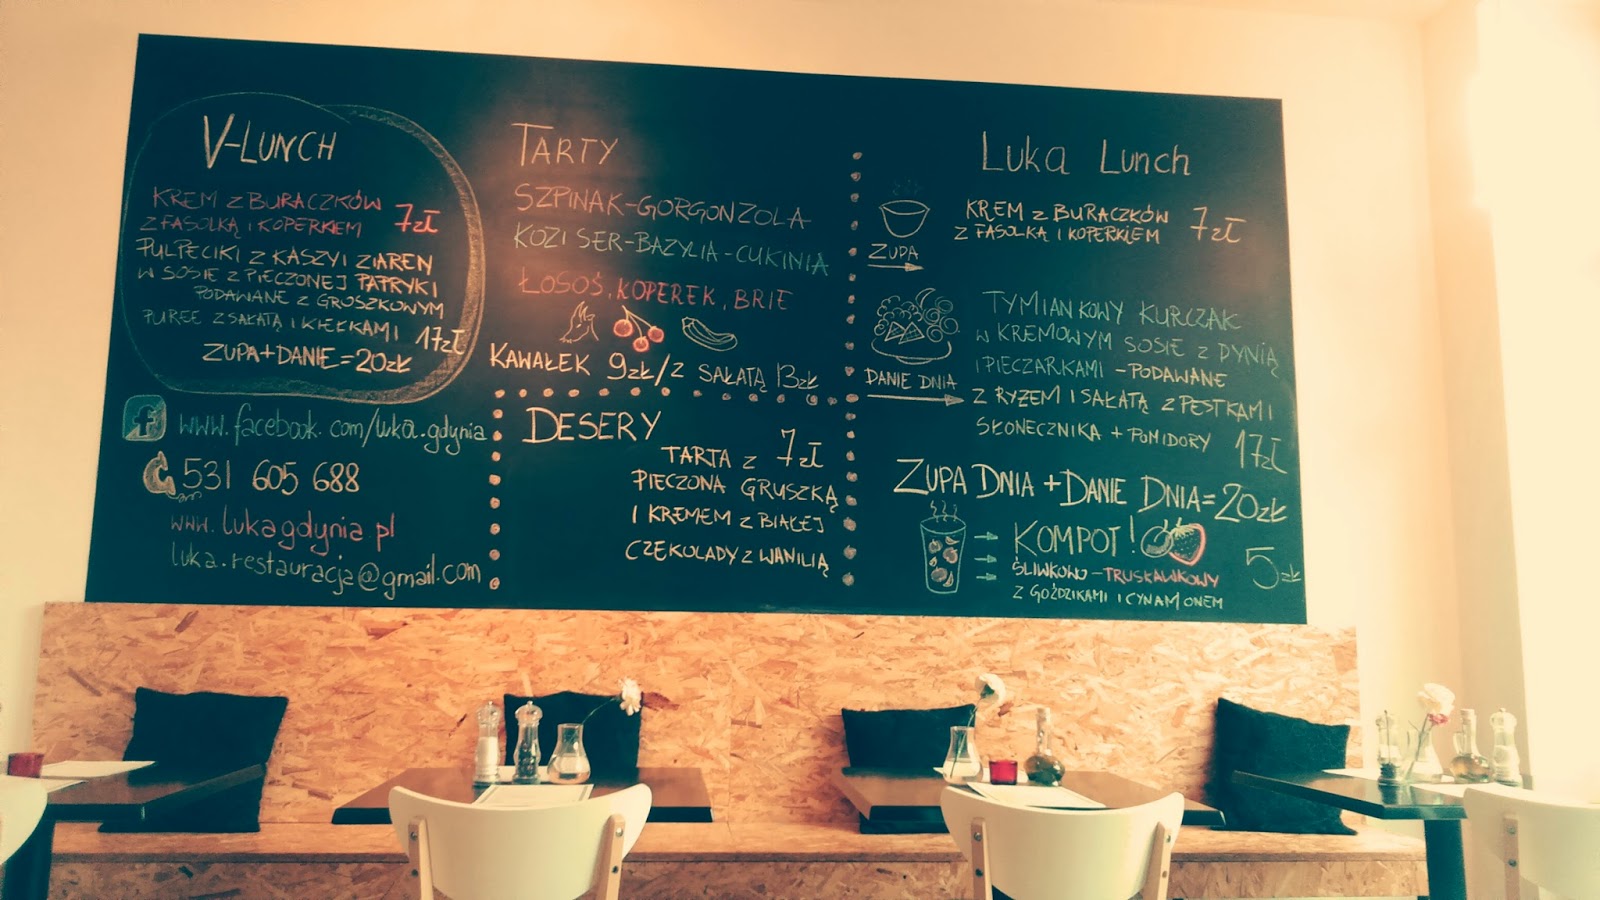 V-LUNCH
KREM Z BURACZKÓW
Z FASOLKĄ I KOPERKIEM 7zł
PULPECIKI Z KASZY I ZIAREN
W SOSIE Z PIECZONEJ PAPRYKI
PODAWANE Z GROSZKOWYM
PUREE Z SAŁATĄ I KIEŁKAMI 17zł
ZUPA+DANIE=20zł
f www.facebook.com/luka.gdynia
531 605 688
www.lukagdynia.pl
luka.restauracja@gmail.com
TARTY
SZPINAK-GORGONZOLA
KOZI SER-BAZYLIA-CUKINIA
ŁOSOŚ, KOPEREK, BRIE
KAWAŁEK 9zł/Z SAŁATĄ 13zł
DESERY
TARTA Z 7zł
PIECZONĄ GRUSZKĄ
I KREMEM Z BIAŁEJ
CZEKOLADY Z WANILIĄ
Luka Lunch
ZUPA
KREM Z BURACZKÓW 7zł
Z FASOLKĄ I KOPERKIEM
DANIE DNIA
TYMIANKOWY KURCZAK
W KREMOWYM SOSIE Z DYNIĄ
I PIECZARKAMI - PODAWANE
Z RYŻEM I SAŁATĄ Z PESTKAMI
SŁONECZNIKA + POMIDORY 17zł
ZUPA DNIA + DANIE DNIA = 20zł
KOMPOT!
ŚLIWKOWO-TRUSKAWKOWY 5zł
Z GOŹDZIKAMI I CYNAMONEM